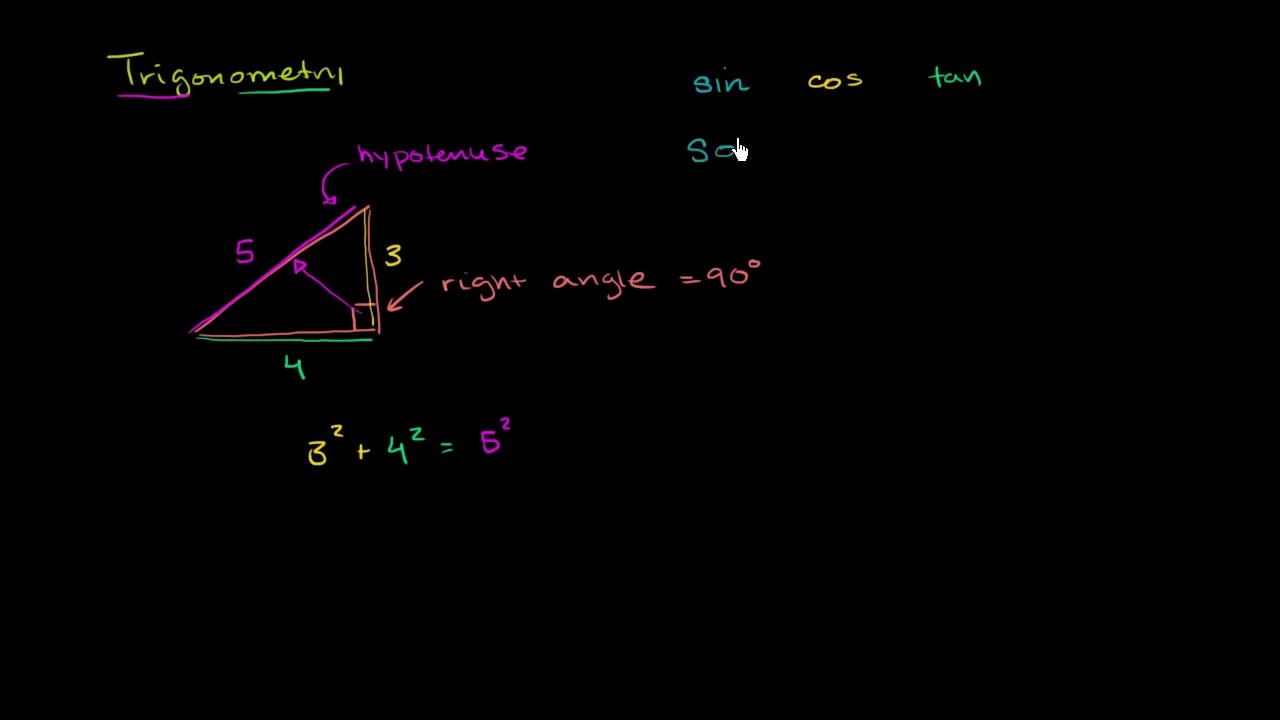 Trigonometry
sin cos tan
hypotenuse
so
5
3
right angle = 90°
4
3² + 4² = 5²